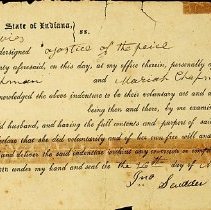 State of Indiana,
ss.
dersigned "a justice of the peice
nty aforesaid, on this day, at my office therein, personally
pman and Mariah Chap
knowledged the above indenture to be their voluntary act and
being then and there, by me examin
id husband, and having the full contents and purport of sai
that she did voluntarily and of her own free will and
and deliver the said indenture without any coercion or comp
ven under my hand and seal the 26th day of
Jno Scudder